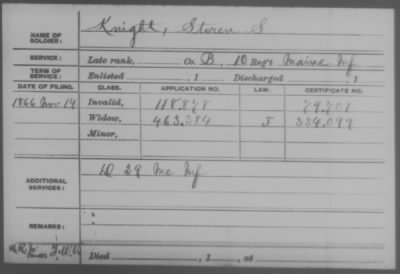 NAME OF SOLDIER: Knight, Steren S
SERVICE: Late rank, Co. B, 10 Reg't Maine Inf
TERM OF SERVICE: Enlisted , 1 Discharged , 1
DATE OF FILING. CLASS. APPLICATION NO. LAW. CERTIFICATE NO.
1866 Nov 14 Invalid, 118.878
Widow, 463.384 J 334.099
Minor,
ADDITIONAL SERVICES: D 29 Me Inf
REMARKS:
Died , 1 , at